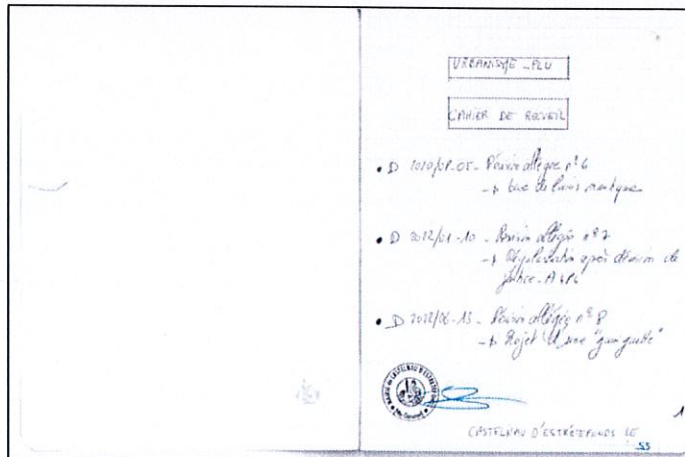 URBANISME - PLU
CAHIER DE RECUEIL
• D 2020/07-05 - Révision allégée n° 6
→ base de loisirs nautique
• D 2022/01-10 - Révision allégée n° 7
→ Régularisation après décision de
justice - A4P4
• D 2022/06-13 - Révision allégée n° 8
→ Projet d'une "guinguette"
MAIRIE DE CASTELNAU D'ESTRETEFONDS
1
CASTELNAU D'ESTRETEFONDS LE